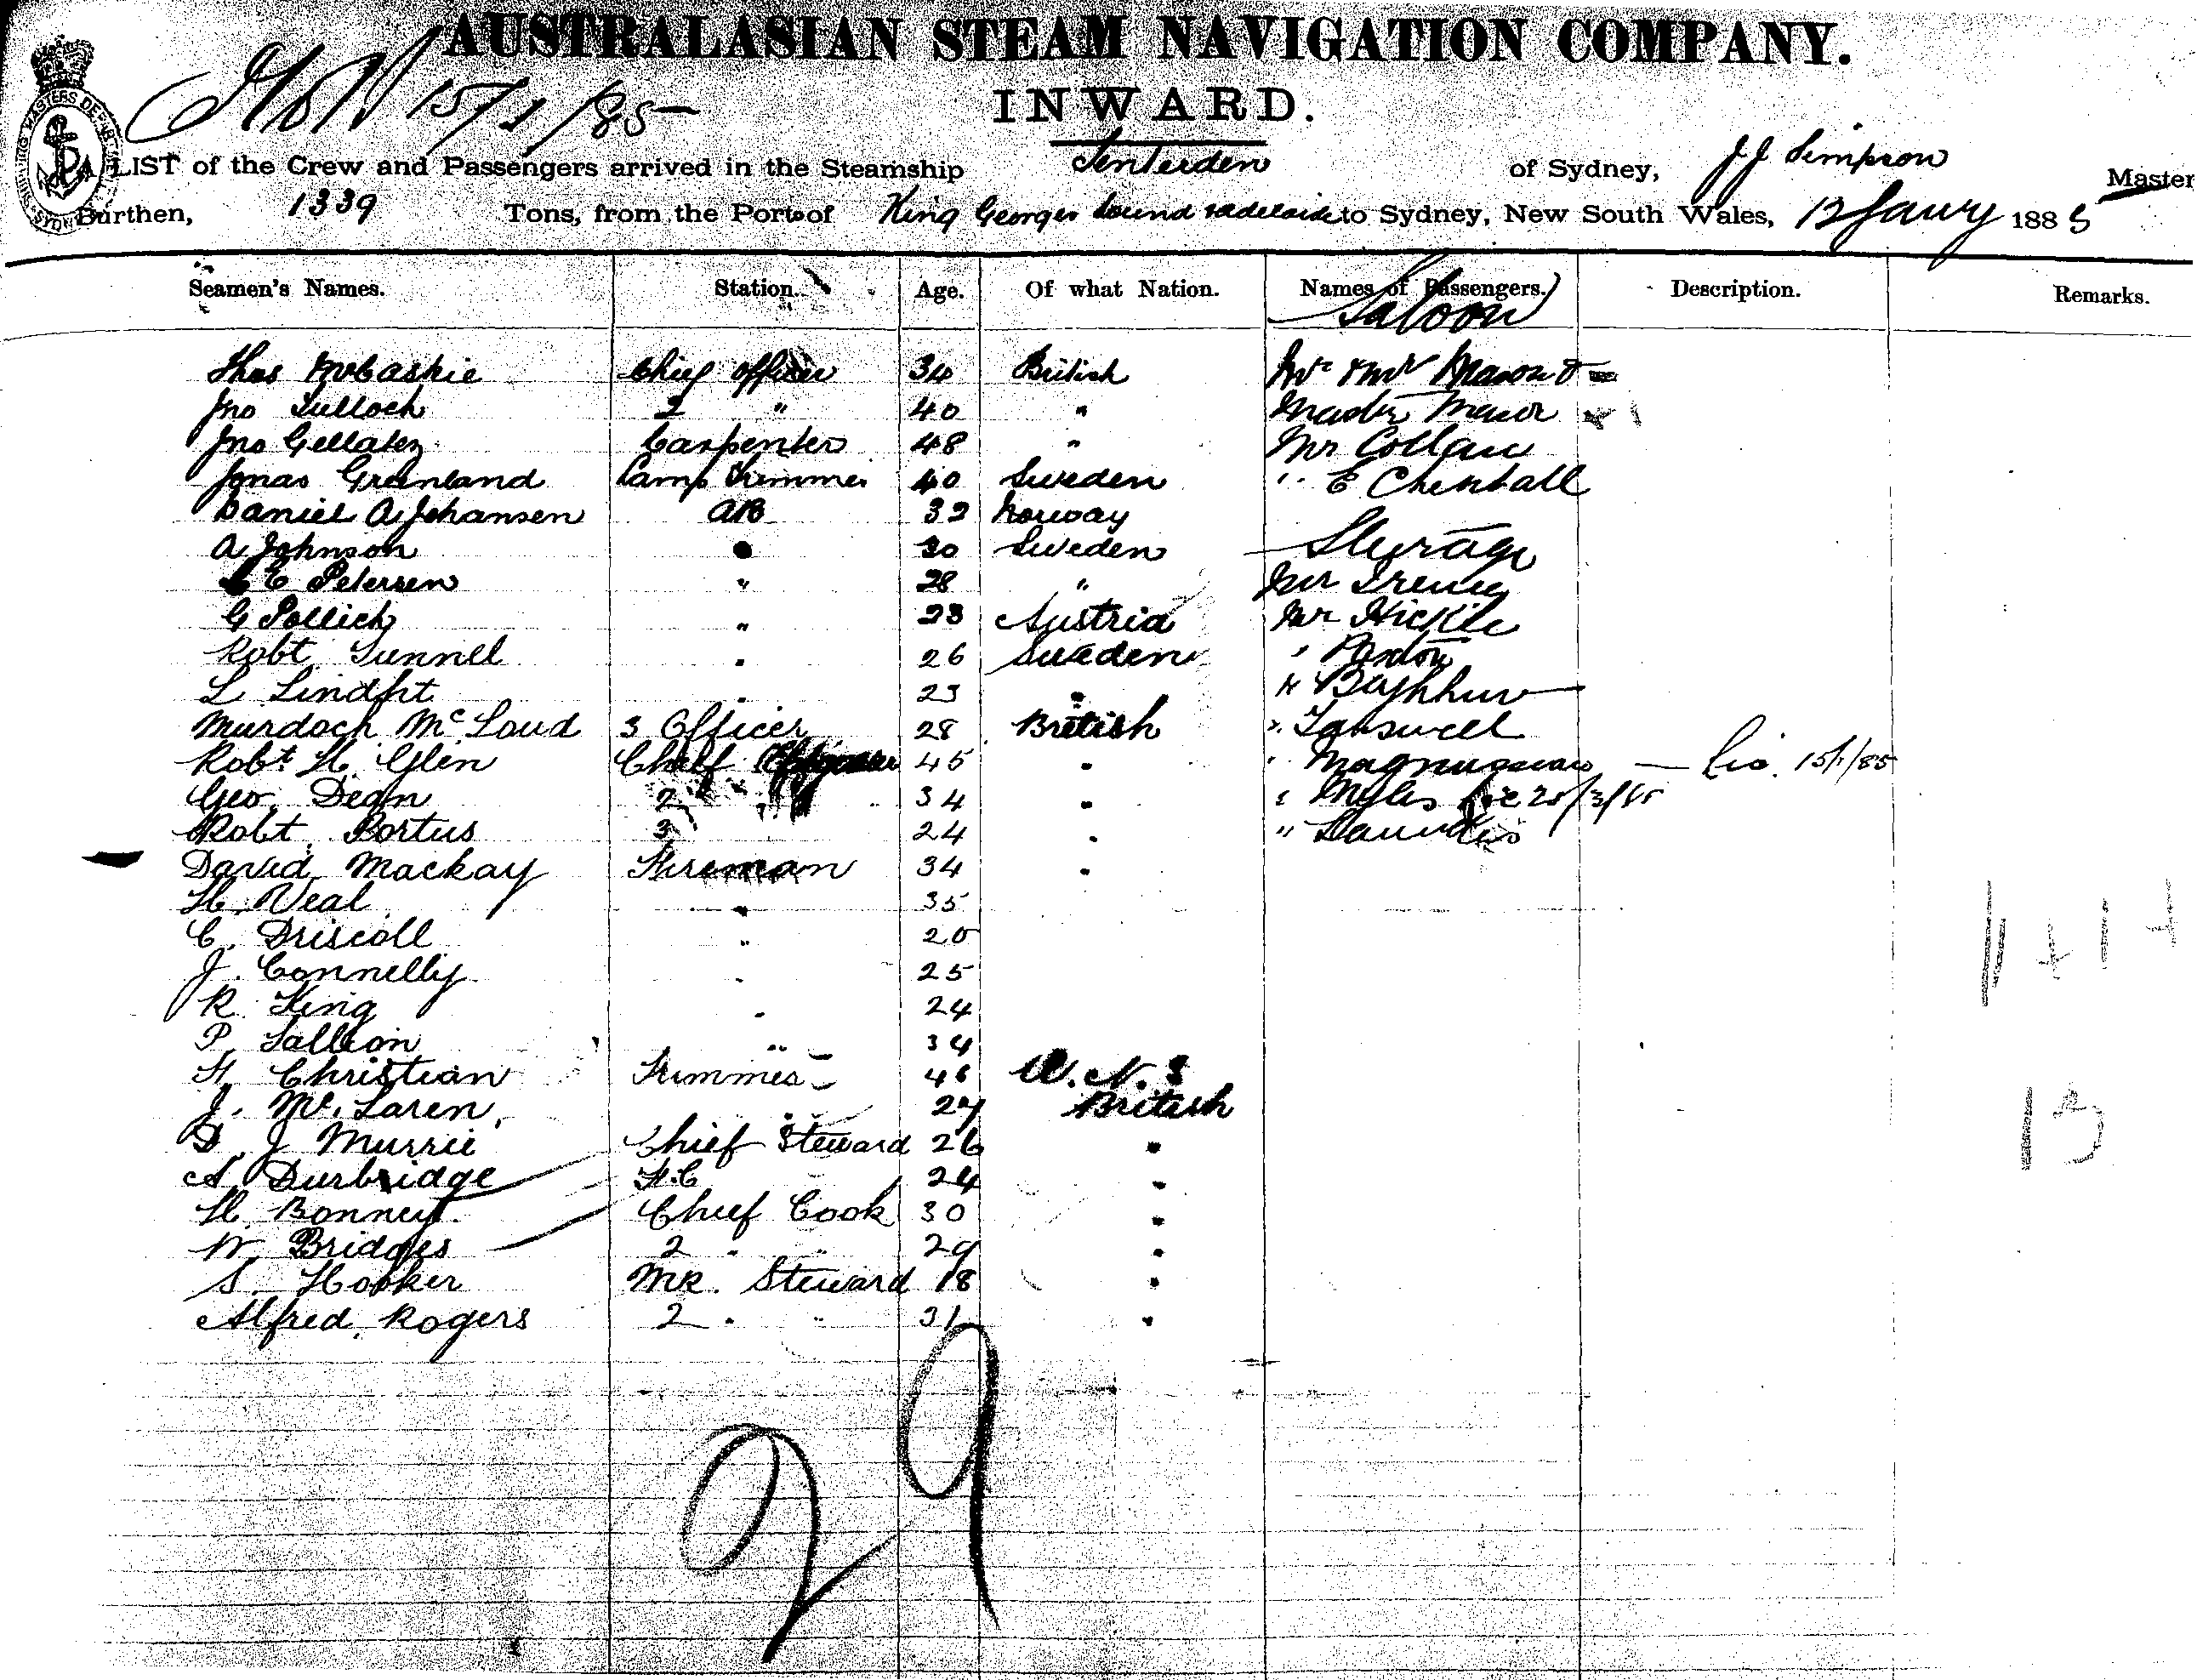 AUSTRALASIAN STEAM NAVIGATION COMPANY.
15/1/85
INWARD.
A LIST of the Crew and Passengers arrived in the Steamship Tenterden of Sydney, J J Simpson Master
Burthen, 1339 Tons, from the Ports of King Georges Sound & Adelaide to Sydney, New South Wales, 12 Jany 1885
Seamen's Names. Station. Age. Of what Nation. Names of Passengers. Description. Remarks.
Saloon
Thos McCaskie Chief Officer 34 British Mr & Mrs Mason &
Jno Tulloch 2 " 40 " Master Mason
Jno Gellatly Carpenter 48 " Mr
Jonas Greenland Lamp Trimmer 40 Sweden " E Chenhall
Daniel A Johansen AB 32 Norway
A Johnson 30 Sweden Steerage
C E Petersen " 28 " Mr
G Pollich " 23 Austria Mr Hickle
Robt Tunnell " 26 Sweden " Paxton
L 23 "
Murdoch Mc Loud 3 Officer 28 British " Tanswell
Robt H Glen Chief Engineer 45 " " Magnussen — Lic. 15/1/85
Geo. Dean 2 " 34 " " Myles
Robt. Portus 3 24 " " Saunders
David Mackay Fireman 34 "
H. Veal " 35
C. Driscoll " 20
J. Connelly " 25
R. King " 24
P. Sallion " 34
H. Christian Trimmer 46 W. N. S
J. Mc. Laren " 27 British
D. J Murrie Chief Steward 26 "
A Durbridge F.C 24 "
H. Bonney Chief Cook 30 "
W. Bridges 2 " " 29 "
S. Hooker MR. Steward 18 "
Alfred Rogers 2 " " 31 "
13
29